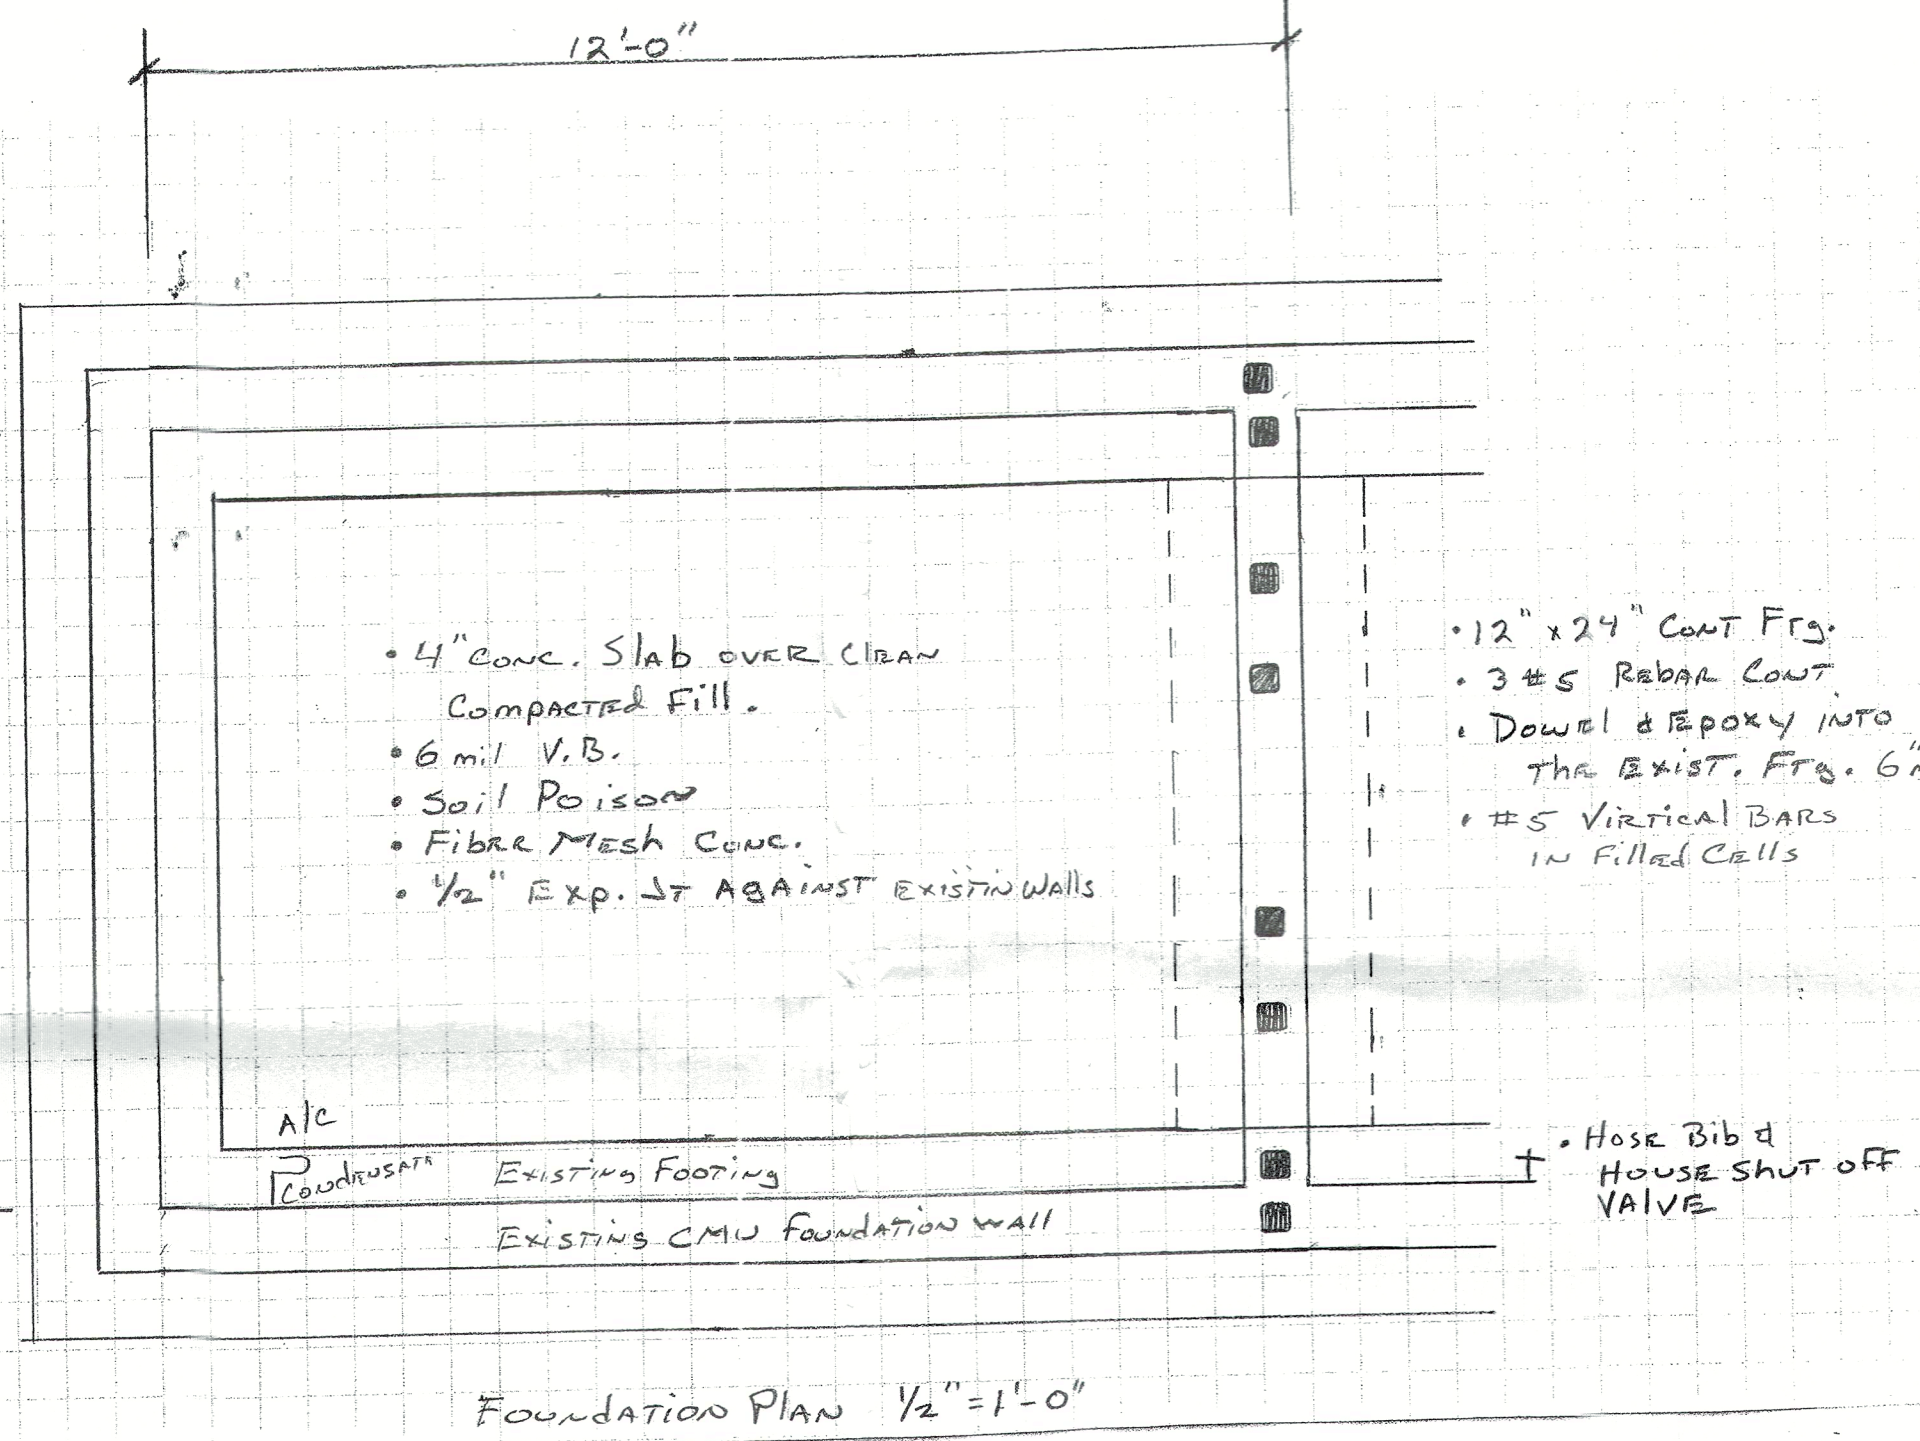 12'-0"
• 4" Conc. Slab over Clean
Compacted Fill.
• 6 mil V.B.
• Soil Poison
• Fiber Mesh Conc.
• 1/2" Exp. Jt Against Existin Walls
• 12" x 24" Cont Ftg.
• 3 #5 Rebar Cont
• Dowel & Epoxy into
the Exist. Ftg. 6"
• #5 Virtical Bars
in Filled Cells
A/C
Condensate
Existing Footing
Existing CMU Foundation Wall
• Hose Bib &
House Shut Off
Valve
Foundation Plan 1/2" = 1'-0"